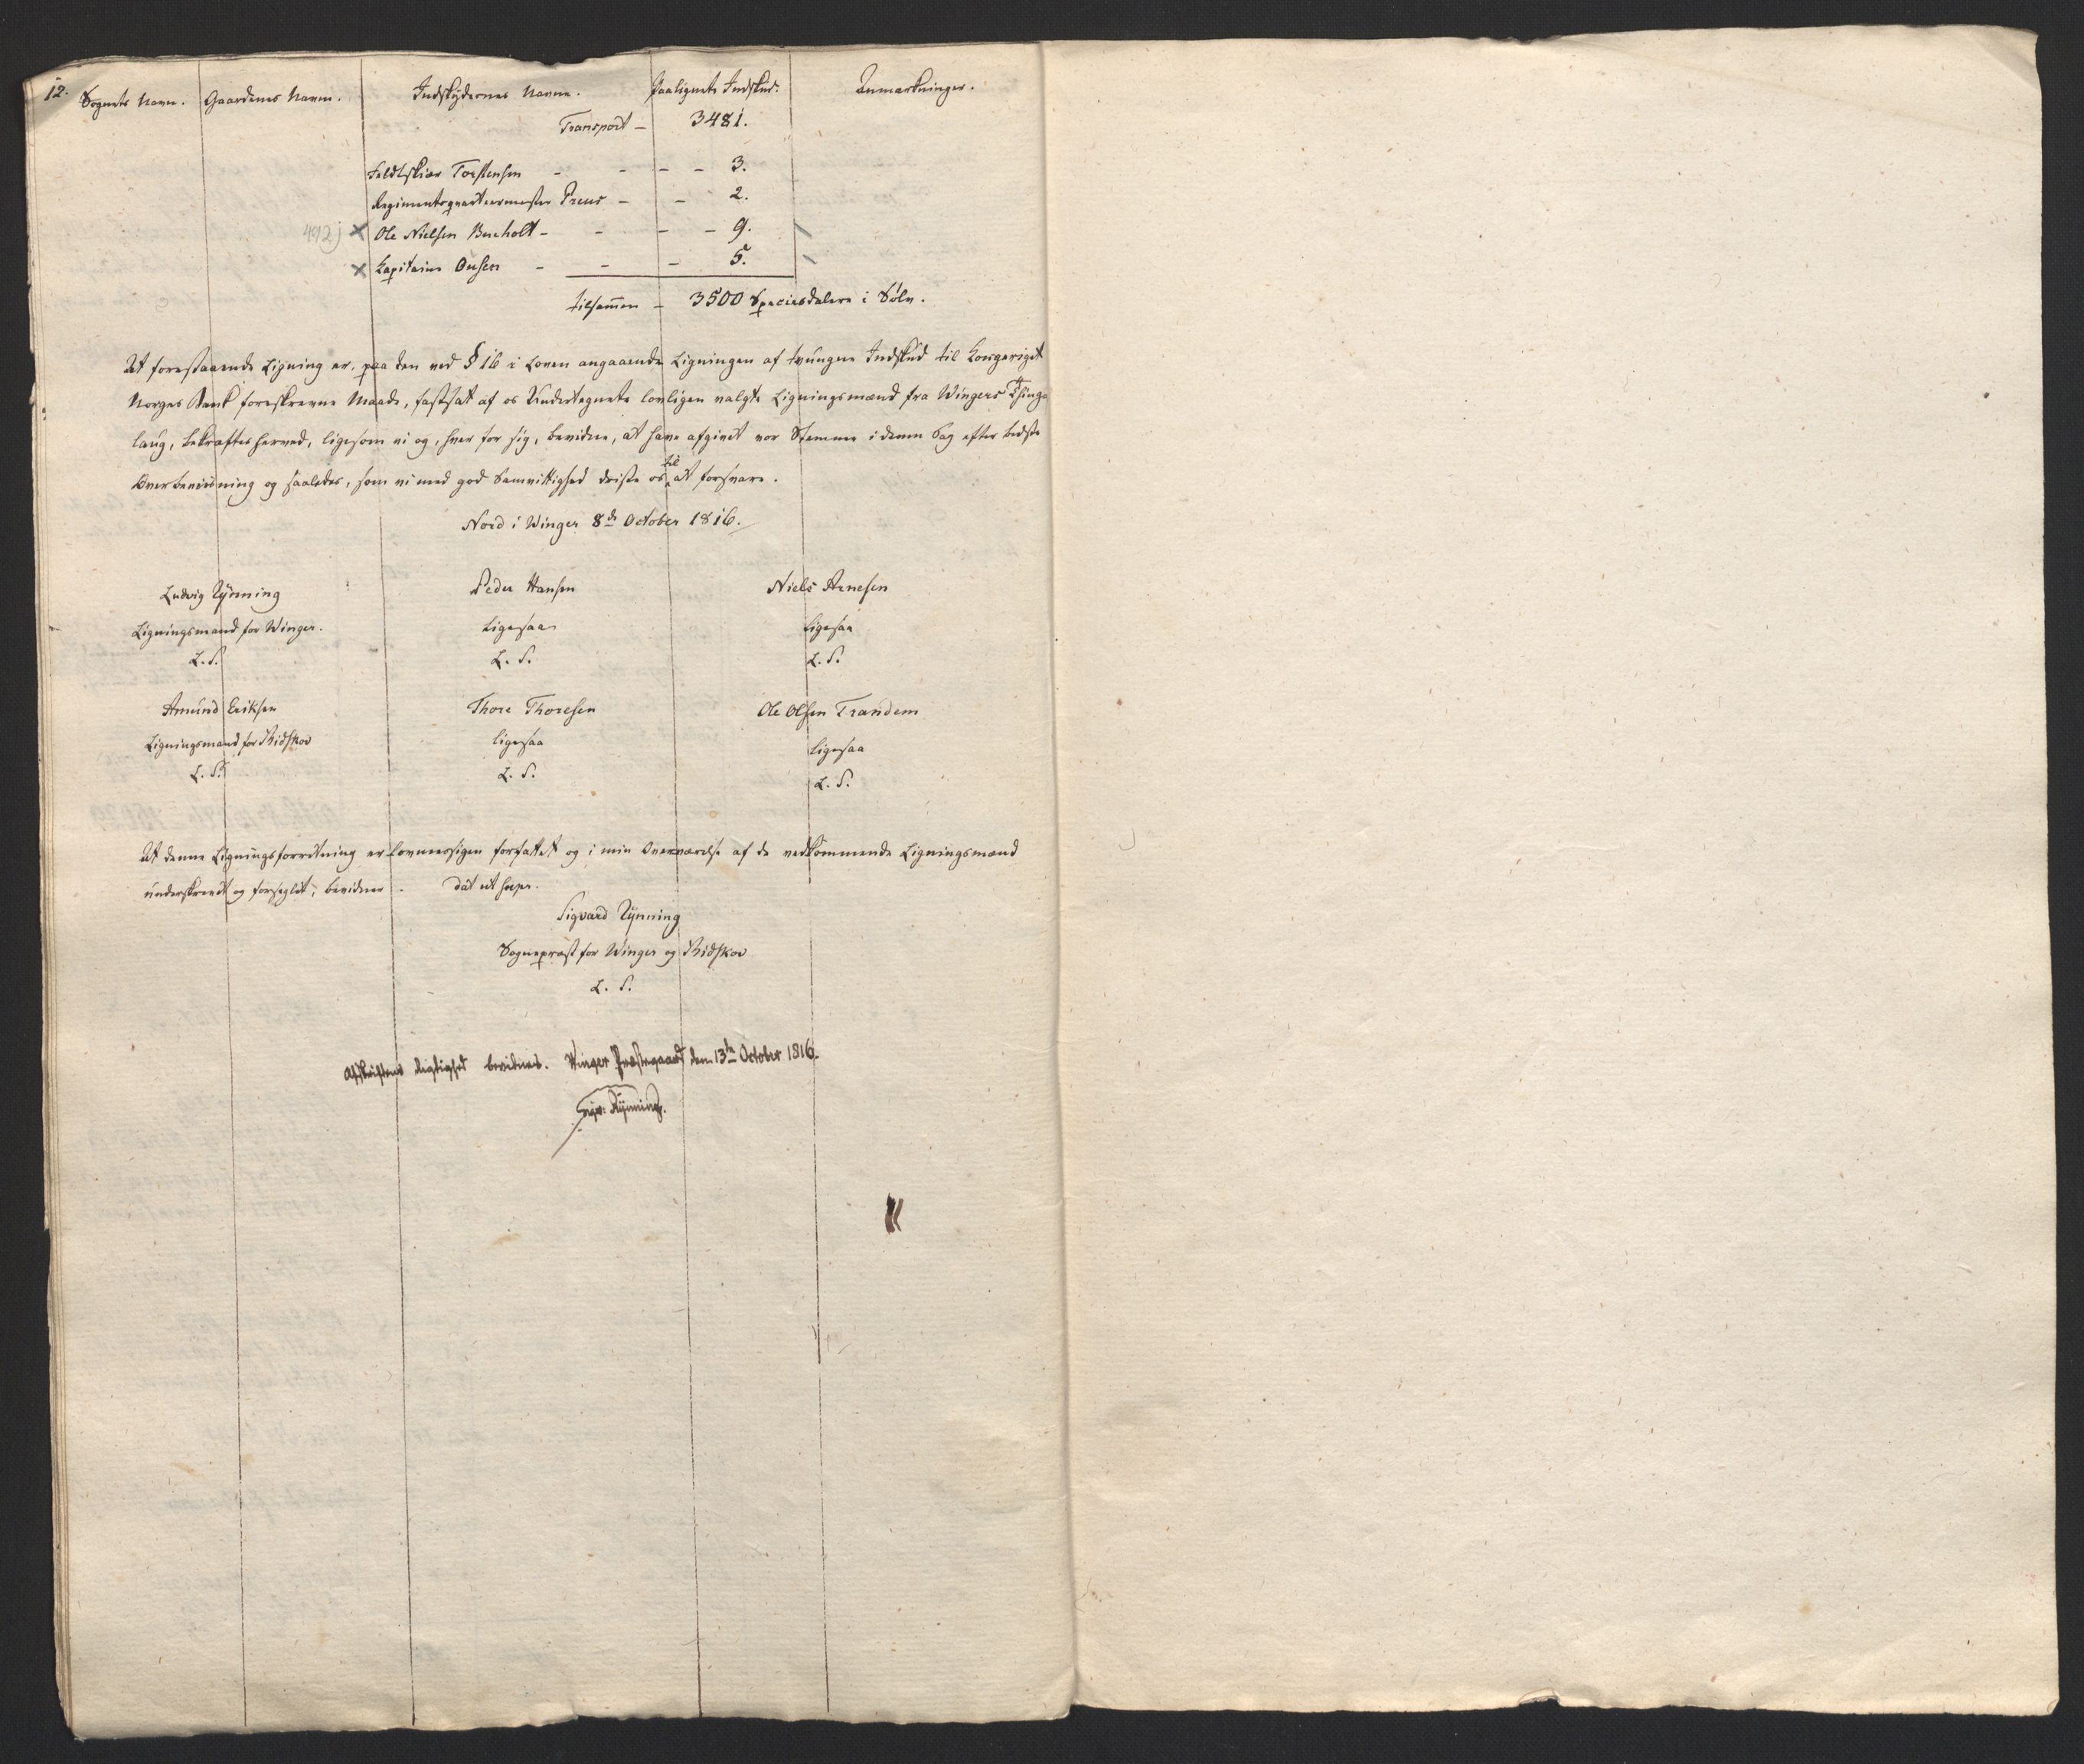 12. Sognets Navn. Gaardenes Navn. Indskydernes Navne. Paalignete Indskud. Anmærkninger.
Transport – 3481.
Feldtskiær Torstensen – – – – 3.
Regimentsqvarteermester Preus – – 2.
492) × Ole Nielsen Bueholt – – – – 9.
× Kapitain Ousen – – – 5.
tilsammen – 3500 Speciesdalere i Sølv.
At forestaaende Ligning er, paa den ved § 16 i Loven angaaende Ligningen af tvungne Indskud til Kongeriget
Norges Bank foreskrevne Maade, fastsat af os Undertegnete lovligen valgte Ligningsmænd fra Wingers Thinge
laug, bekræftes herved, ligesom vi og, hver for sig, bevidne, at have afgivet vor Stemme i denne Sag efter bedste
Overbeviisning og saaledes, som vi med god Samvittighed driste os til at forsvare.
Nord i Winger 8de October 1816.
Ludvig Rynning Peder Hansen Niels Arnesen
Ligningsmand for Winger. Ligesaa Ligesaa
L. S. L. S. L. S.
Amund Eriksen Thore Thoresen Ole Olsen Trandem
Ligningsmand for Eidskov ligesaa ligesaa
L. S. L. S. L. S.
At denne Ligningsforretning er lovmæssigen forfattet og i min Overværelse af de vedkommende Ligningsmænd
underskrevet og forseglet, bevidner. Dat ut supr.
Sigvard Rynning
Sognepræst for Winger og Eidskov
L. S.
Afskriftens Rigtighed bevidnes. Winger Præstegaard den 13de October 1816.
Rynning.